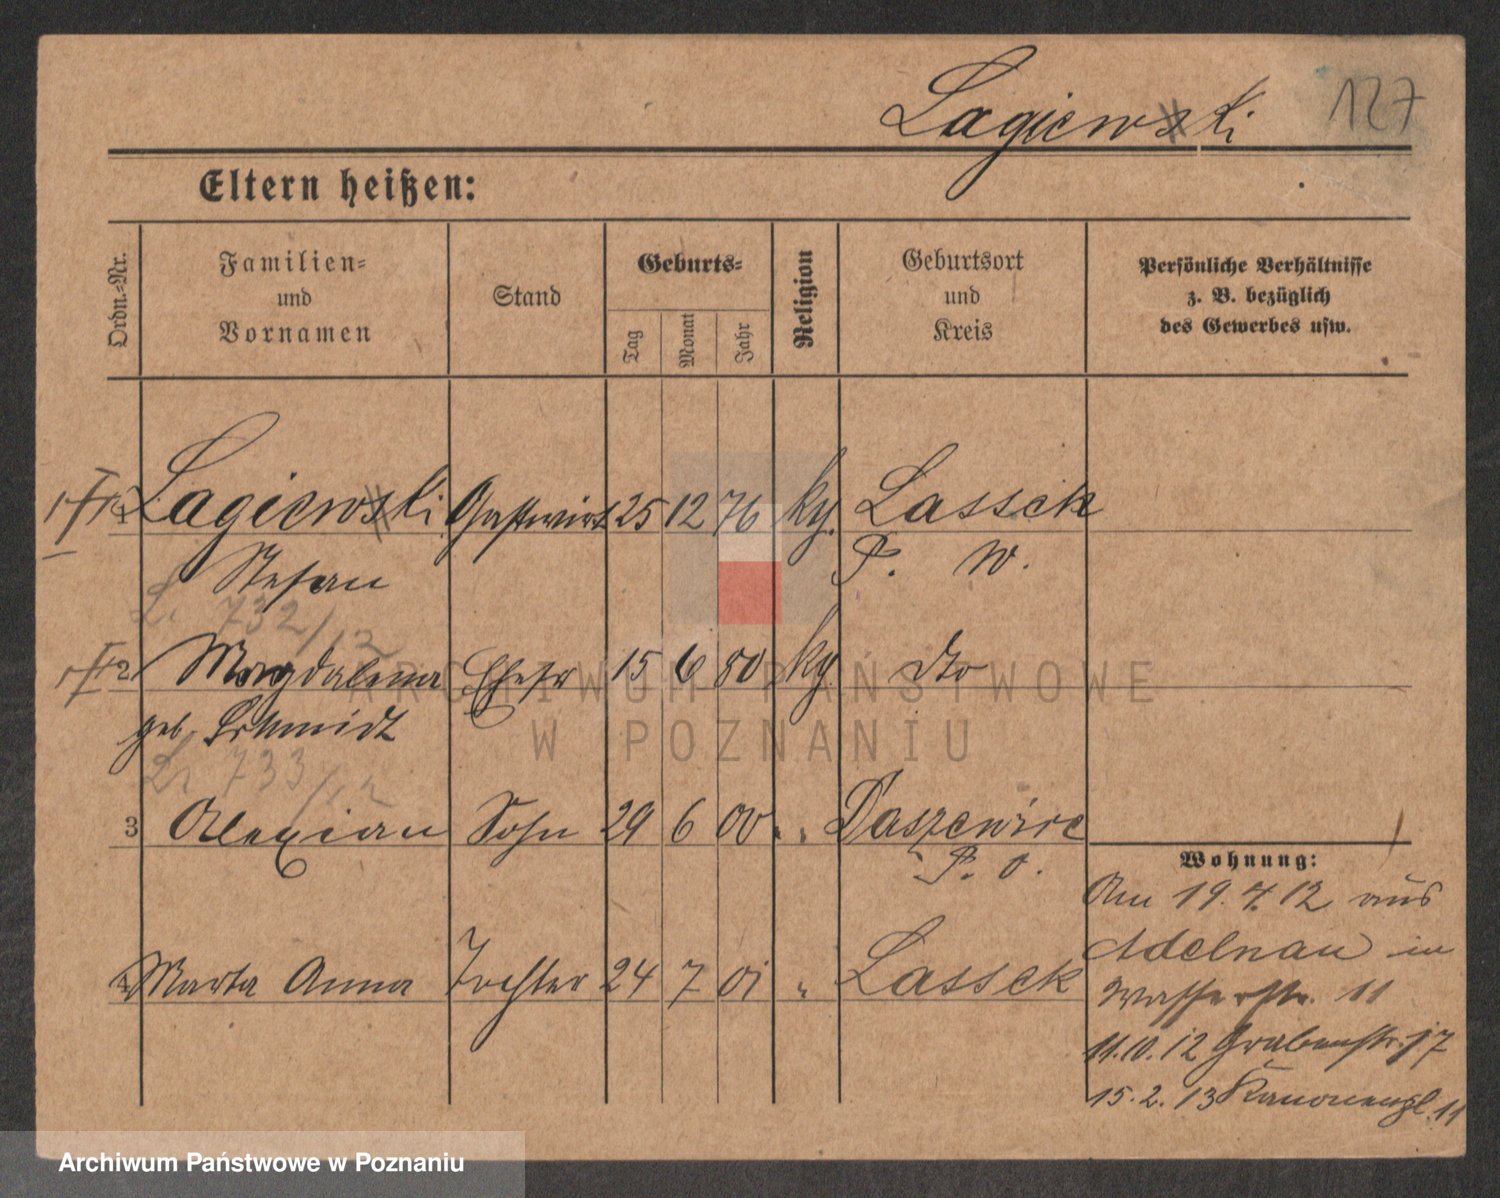 Lagiewski 127
Eltern heißen:
Ordn.-Nr.
Familien-
und
Vornamen
Stand
Geburts-
Tag
Monat
Jahr
Religion
Geburtsort
und
Kreis
Persönliche Verhältnisse
z. B. bezüglich
des Gewerbes usw.
1 Lagiewski Gastwirt 25 12 76 kg. Lassek
Stefan P. W.
L. 732/12
2 Magdalena Ehefr 15 6 80 kg dto
geb. Schmidt
L. 733/12
3 Alexian Sohn 29 6 00 " Daszewice
P. O.
4 Marta Anna Tochter 24 7 01 " Lassek
Wohnung:
Am 19.7.12 aus
Adelnau in
Wasserstr. 11
11.10.12 Grabenstr. 17
15.2.13 Kanonenpl. 11
ARCHIWUM PAŃSTWOWE
W POZNANIU
Archiwum Państwowe w Poznaniu